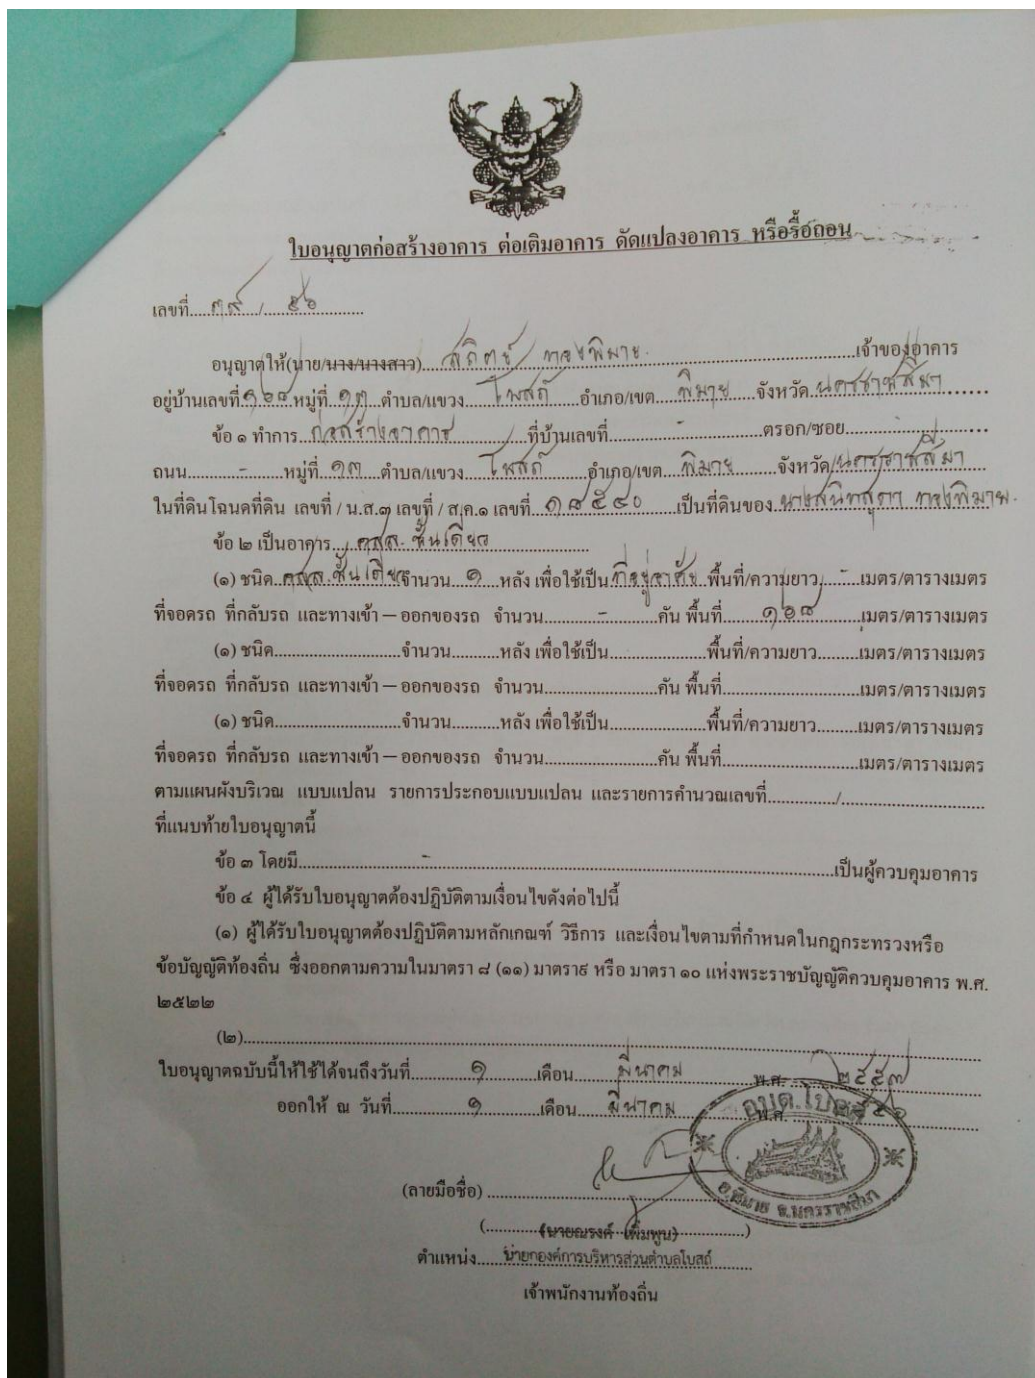 ใบอนุญาตก่อสร้างอาคาร ต่อเติมอาคาร ดัดแปลงอาคาร หรือรื้อถอน
เลขที่....๓๙..../....๕๖............
อนุญาตให้(นาย/นาง/นางสาว)....สถิตย์ ทองพิมาย....เจ้าของอาคาร
อยู่บ้านเลขที่.๑๖๘.หมู่ที่.๑๓.ตำบล/แขวง....โบสถ์....อำเภอ/เขต...พิมาย...จังหวัด.นครราชสีมา......
ข้อ ๑ ทำการ..ก่อสร้างอาคาร......ที่บ้านเลขที่........-........ตรอก/ซอย........-........
ถนน......-......หมู่ที่..๑๓..ตำบล/แขวง...โบสถ์...อำเภอ/เขต..พิมาย....จังหวัด.นครราชสีมา
ในที่ดินโฉนดที่ดิน เลขที่ / น.ส.๓ เลขที่ / ส.ค.๑ เลขที่..๑๘๕๔๐....เป็นที่ดินของ.ทองพิมาย.
ข้อ ๒ เป็นอาคาร...คสล. ชั้นเดียว..................
(๑) ชนิด.คสล.ชั้นเดียวจำนวน...๑...หลัง เพื่อใช้เป็น.ที่อยู่อาศัย.พื้นที่/ความยาว...-...เมตร/ตารางเมตร
ที่จอดรถ ที่กลับรถ และทางเข้า – ออกของรถ จำนวน.........-.........คัน พื้นที่.......๑๖๘.......เมตร/ตารางเมตร
(๑) ชนิด............................จำนวน..........หลัง เพื่อใช้เป็น.....................พื้นที่/ความยาว.........เมตร/ตารางเมตร
ที่จอดรถ ที่กลับรถ และทางเข้า – ออกของรถ จำนวน........................คัน พื้นที่..............................เมตร/ตารางเมตร
(๑) ชนิด............................จำนวน..........หลัง เพื่อใช้เป็น.....................พื้นที่/ความยาว.........เมตร/ตารางเมตร
ที่จอดรถ ที่กลับรถ และทางเข้า – ออกของรถ จำนวน........................คัน พื้นที่..............................เมตร/ตารางเมตร
ตามแผนผังบริเวณ แบบแปลน รายการประกอบแบบแปลน และรายการคำนวณเลขที่............../..............................
ที่แนบท้ายใบอนุญาตนี้
ข้อ ๓ โดยมี..........................-..........................เป็นผู้ควบคุมอาคาร
ข้อ ๔ ผู้ได้รับใบอนุญาตต้องปฏิบัติตามเงื่อนไขดังต่อไปนี้
(๑) ผู้ได้รับใบอนุญาตต้องปฏิบัติตามหลักเกณฑ์ วิธีการ และเงื่อนไขตามที่กำหนดในกฎกระทรวงหรือ
ข้อบัญญัติท้องถิ่น ซึ่งออกตามความในมาตรา ๘ (๑๑) มาตรา๙ หรือ มาตรา ๑๐ แห่งพระราชบัญญัติควบคุมอาคาร พ.ศ.
๒๕๒๒
(๒)..................................................
ใบอนุญาตฉบับนี้ให้ใช้ได้จนถึงวันที่......๑......เดือน......มีนาคม......พ.ศ.......๒๕๕๗
ออกให้ ณ วันที่.........๑.........เดือน....มีนาคม.......พ.ศ.....๒๕๕๖
อบต.โบสถ์
อ.พิมาย จ.นครราชสีมา
(ลายมือชื่อ) ..............................
(..........(นายณรงค์ เพิ่มพูน)..........)
ตำแหน่ง.....นายกองค์การบริหารส่วนตำบลโบสถ์
เจ้าพนักงานท้องถิ่น